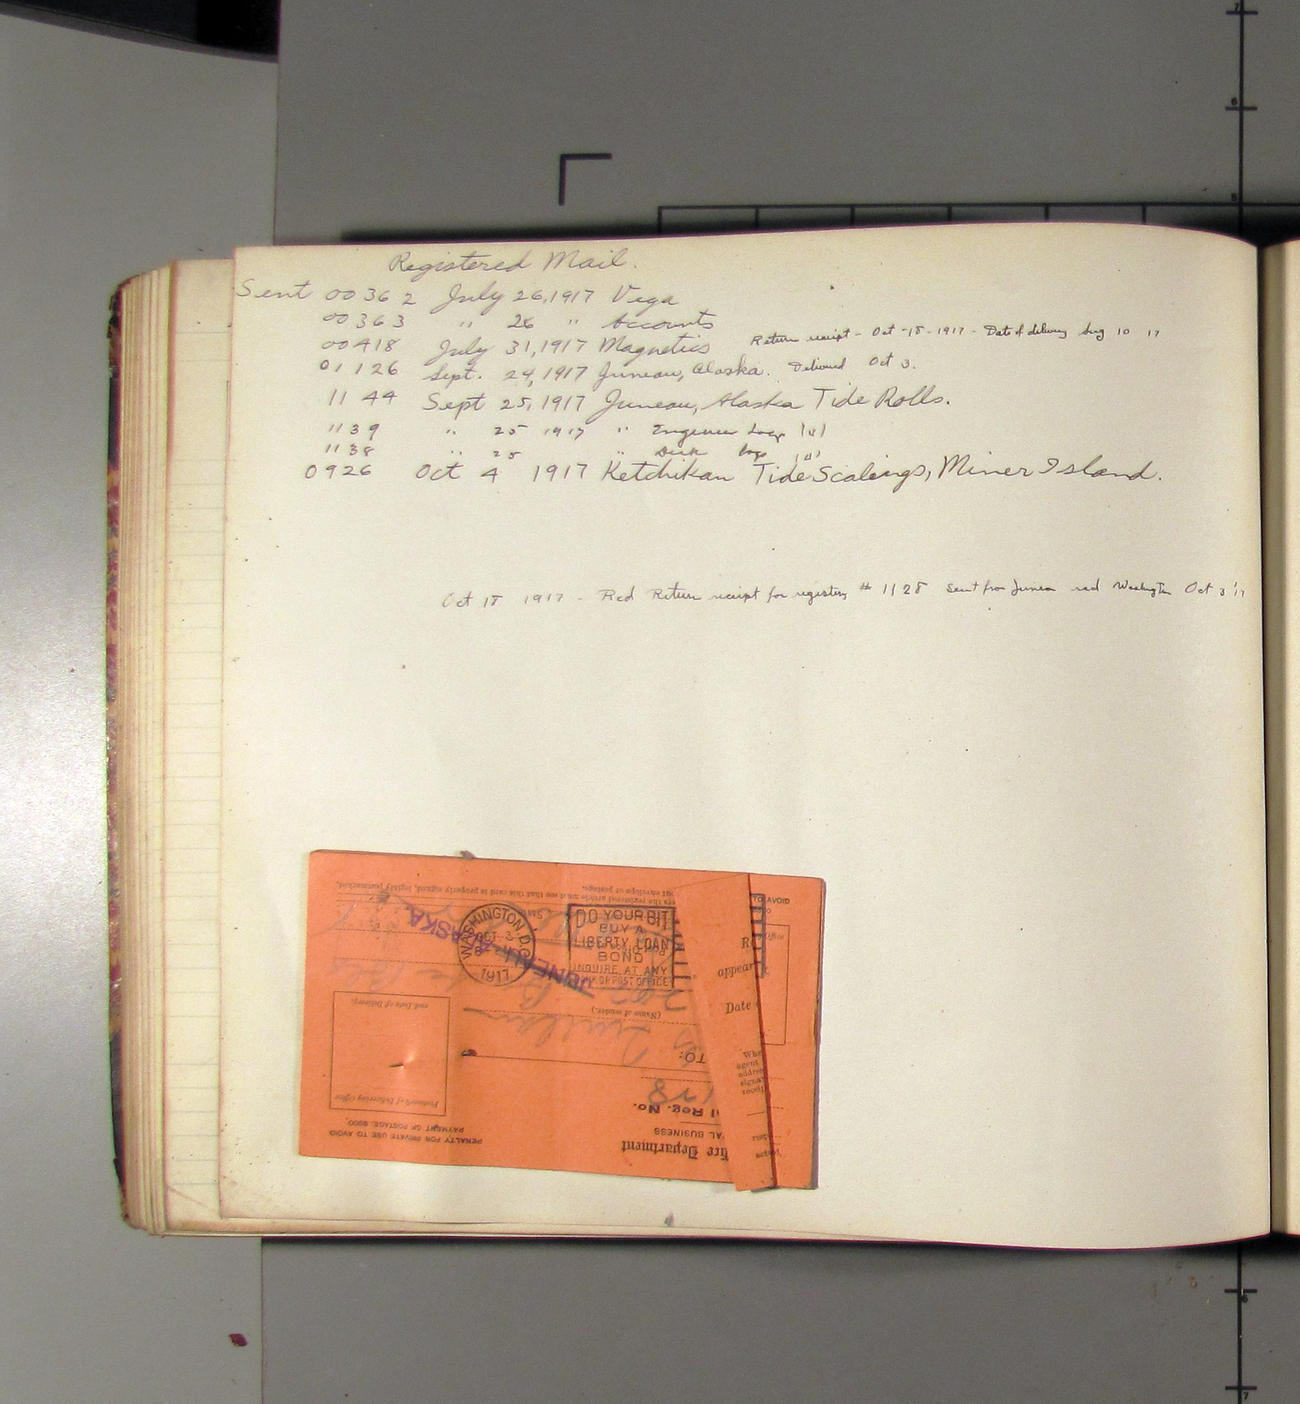 Registered Mail.
Sent 00362 July 26, 1917 Vega
00363 " 26 " Accounts
00418 July 31, 1917 Magnetics Return receipt - Oct -18-1917 - Date of delivery Aug 10 17
01126 Sept. 24, 1917 Juneau, Alaska. Delivered Oct 3.
1144 Sept 25, 1917 Juneau, Alaska Tide Rolls.
1139 " 25 1917 " Engineer Logs
1138 " 25 " Deck Logs
0926 Oct 4 1917 Ketchikan Tide Scalings, Miner Island.
Oct 18 1917 - Red Return receipt for registry # 1128 Sent from Juneau recd Washington Oct 3 '17
out envelope or postage.
the registered article must see that this card is properly signed, legibly postmarked,
JUNEAU ALASKA
WASHINGTON, D.C.
OCT 3
1917
DO YOUR BIT
BUY A
LIBERTY LOAN
BOND
INQUIRE AT ANY
BANK OR POST OFFICE
TO AVOID
appear
Date
(Name of sender.)
and Date of Delivery.
TO:
Postmark of Delivering Office
Reg. No.
PENALTY FOR PRIVATE USE TO AVOID
PAYMENT OF POSTAGE, $300.
AL BUSINESS
ffice Department